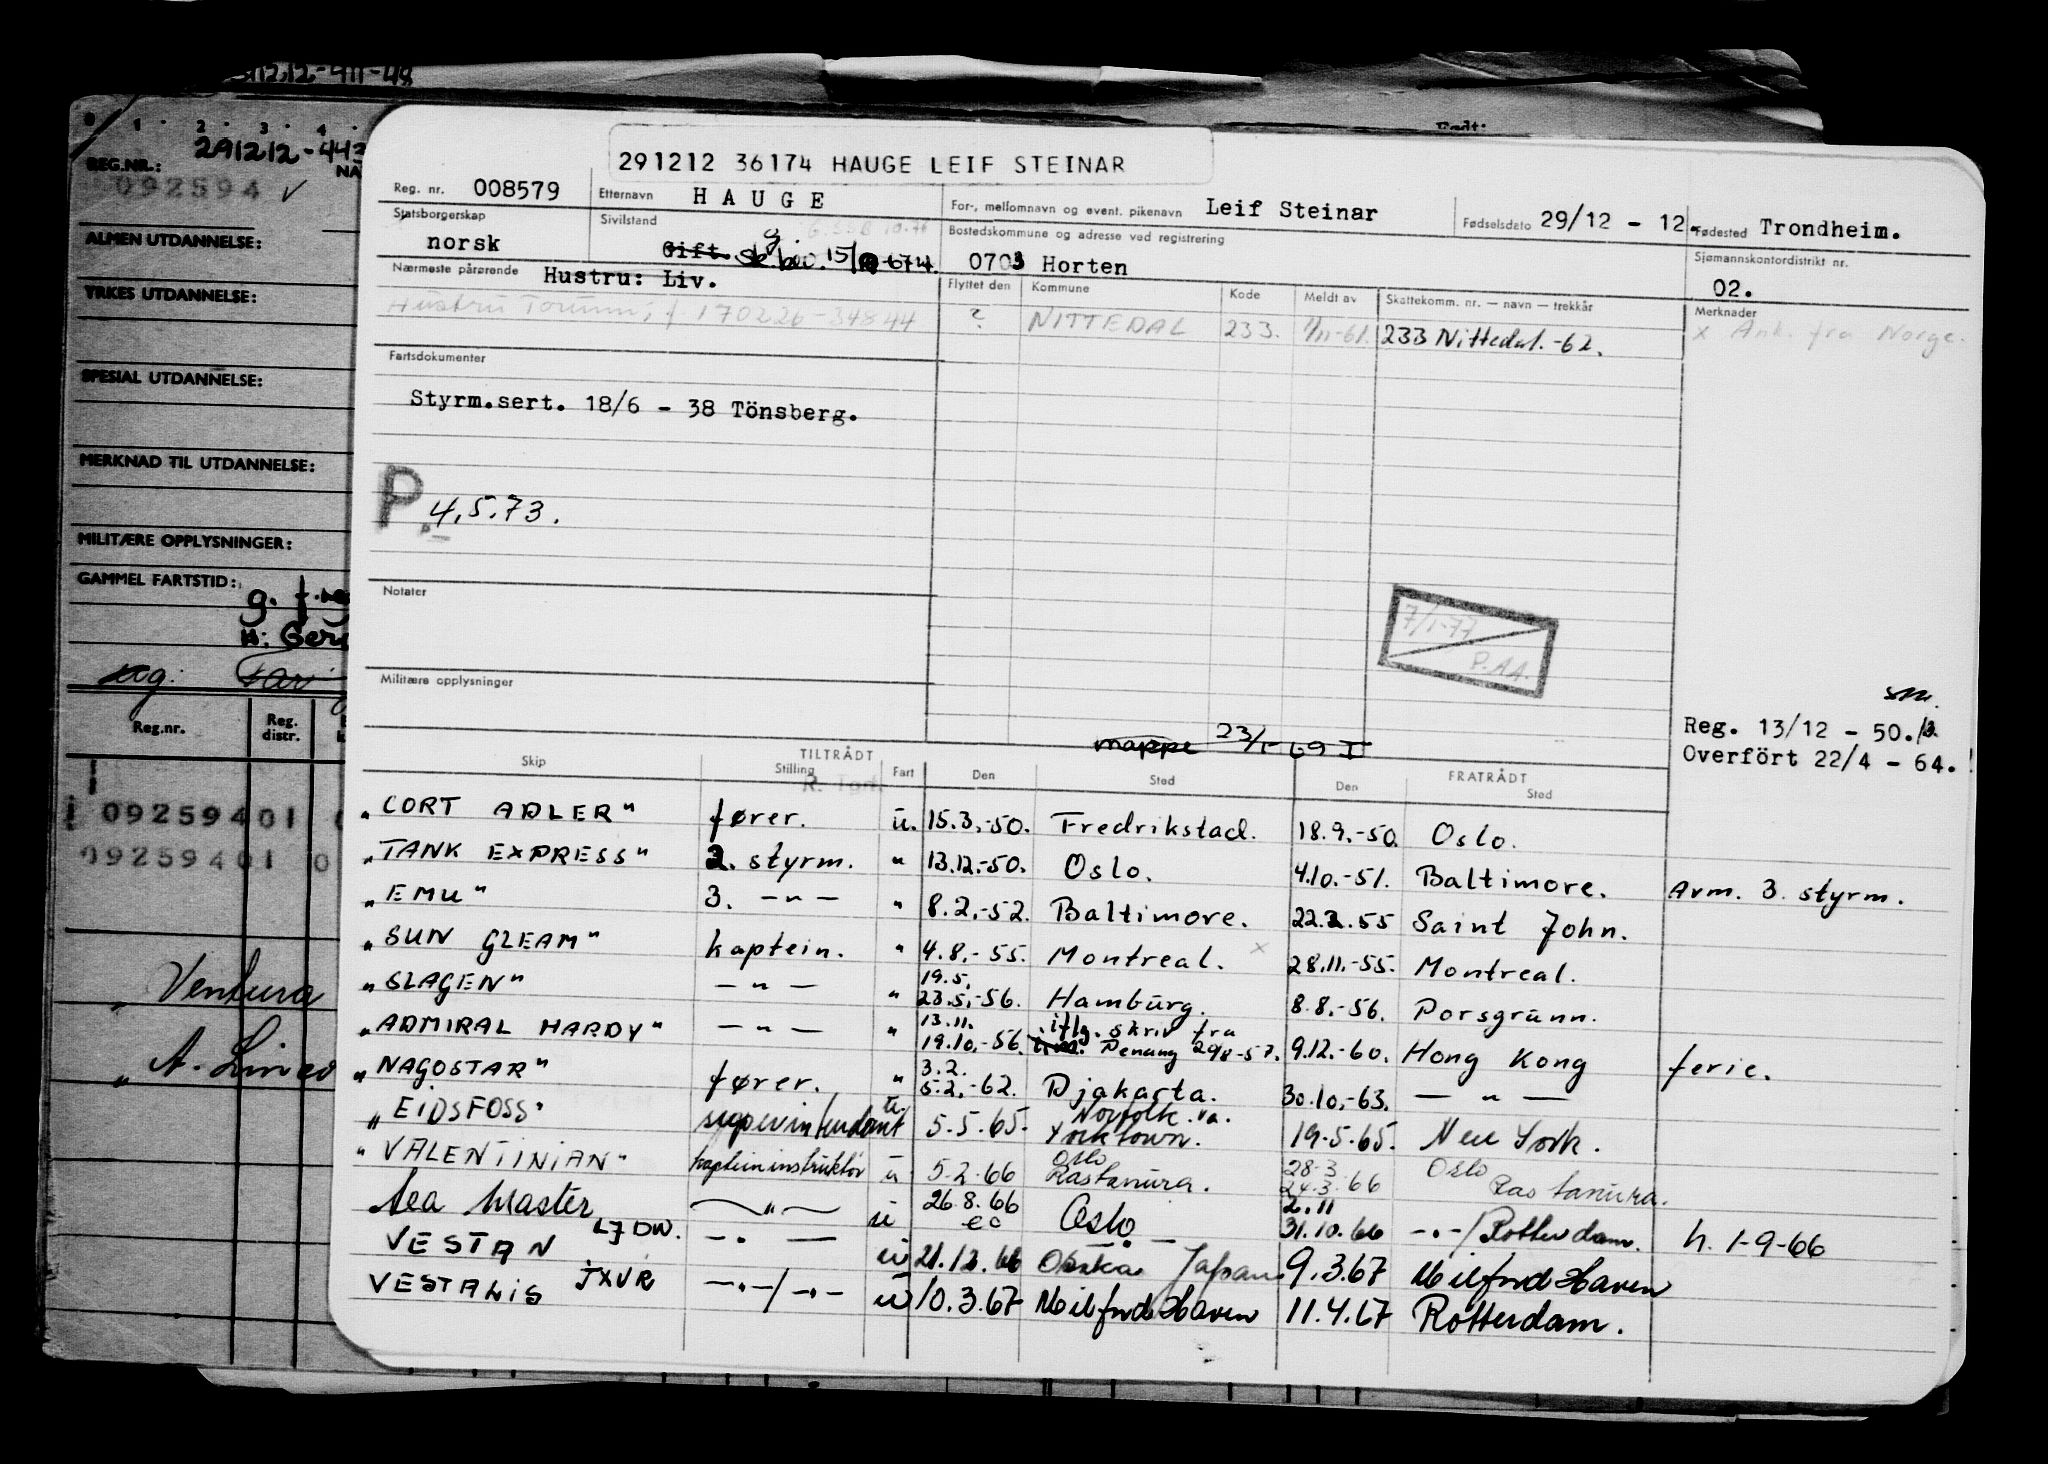 291212-44
REG.NR.:
092594
ALMEN UTDANNELSE:
YRKES UTDANNELSE:
SPESIAL UTDANNELSE:
MERKNAD TIL UTDANNELSE:
MILITÆRE OPPLYSNINGER:
GAMMEL FARTSTID:
Reg.nr. Reg. distr.
09259401
09259401 0
" Ventura
Født:
291212 36174 HAUGE LEIF STEINAR
Reg. nr. 008579 Etternavn HAUGE For-, mellomnavn og event. pikenavn Leif Steinar Fødselsdato 29/12 - 12. Fødested Trondheim.
Statsborgerskap norsk Sivilstand Gift. Bostedskommune og adresse ved registrering 0703 Horten Sjømannskontordistrikt nr. 02.
Nærmeste pårørende Hustru: Liv. Flyttet den Kommune Kode Meldt av Skattekomm. nr. — navn — trekkår Merknader
Hustru Torunn, f. 170226-34844 ? NITTEDAL 233. 1/11-61. 233 Nittedal.-62. x Ank. fra Norge.
Fartsdokumenter
Styrm.sert. 18/6 - 38 Tönsberg.
P 4.5.73.
Notater
7/1-77
P.AA.
Militære opplysninger
Reg. 13/12 - 50.
Overfört 22/4 - 64.
mappe 23/1-69
TILTRÅDT FRATRÅDT
Skip Stilling Fart Den Sted Den Sted
"CORT ADLER" fører. u. 15.3.-50. Fredrikstad. 18.9.-50. Oslo.
"TANK EXPRESS" 2. styrm. " 13.12.-50. Oslo. 4.10.-51. Baltimore. Avm. 3. styrm.
"EMU" 3. —"— " 8.2.-52. Baltimore. 22.2.55 Saint John.
"SUN GLEAM" kaptein. " 4.8.-55. Montreal. x 28.11.-55. Montreal.
"SLAGEN" —"— " 19.5. 23.5.-56. Hamburg. 8.8.-56. Porsgrunn.
"ADMIRAL HARDY" —"— " 13.11. 19.10.-56. iflg. skriv fra Penang 29/8-57. 9.12.-60. Hong Kong ferie.
"NAGOSTAR" fører. " 3.2. 5.2.-62. Djakarta. 30.10.-63. —"—
"EIDSFOSS" superintendant u. 5.5.65. Norfolk. va. Yorktown. 19.5.65. New York.
"VALENTINIAN" kapteininstruktør u 5.2.66 Oslo Rastanura. 28.3 24.3.66 Oslo Ras tanura.
Sea Master —"— u 26.8.66 Oslo 2.11 31.10.66 —"—/Rotterdam. h. 1-9-66
VESTAN LJDW. —"— u 21.12.66 Osaka Japan 9.3.67 Milford Haven
VESTALIS JXVR —"—/—"— u 10.3.67 Milford Haven 11.4.67 Rotterdam.